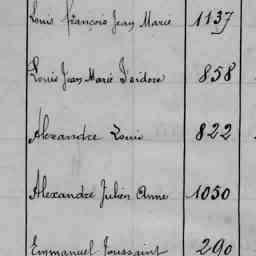 Louis François Jean Marie 1137
Louis Jean Marie Isidore 858
Alexandre Louis 822
Alexandre Julien Anne 1050
Emmanuel Toussaint 290